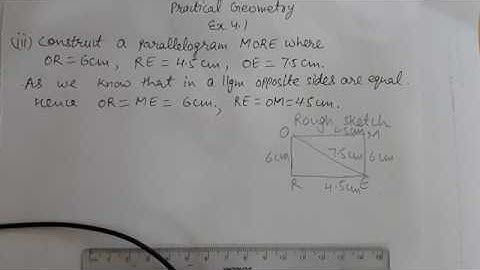 Practical Geometry
Ex 4.1
(iii) Construct a parallelogram MORE where
OR = 6cm, RE = 4.5cm, OE = 7.5cm.
As we know that in a llgm opposite sides are equal.
Hence OR = ME = 6cm, RE = OM = 4.5cm.
Rough sketch
O 4.5cm M
6cm 7.5cm 6cm
R 4.5cm E